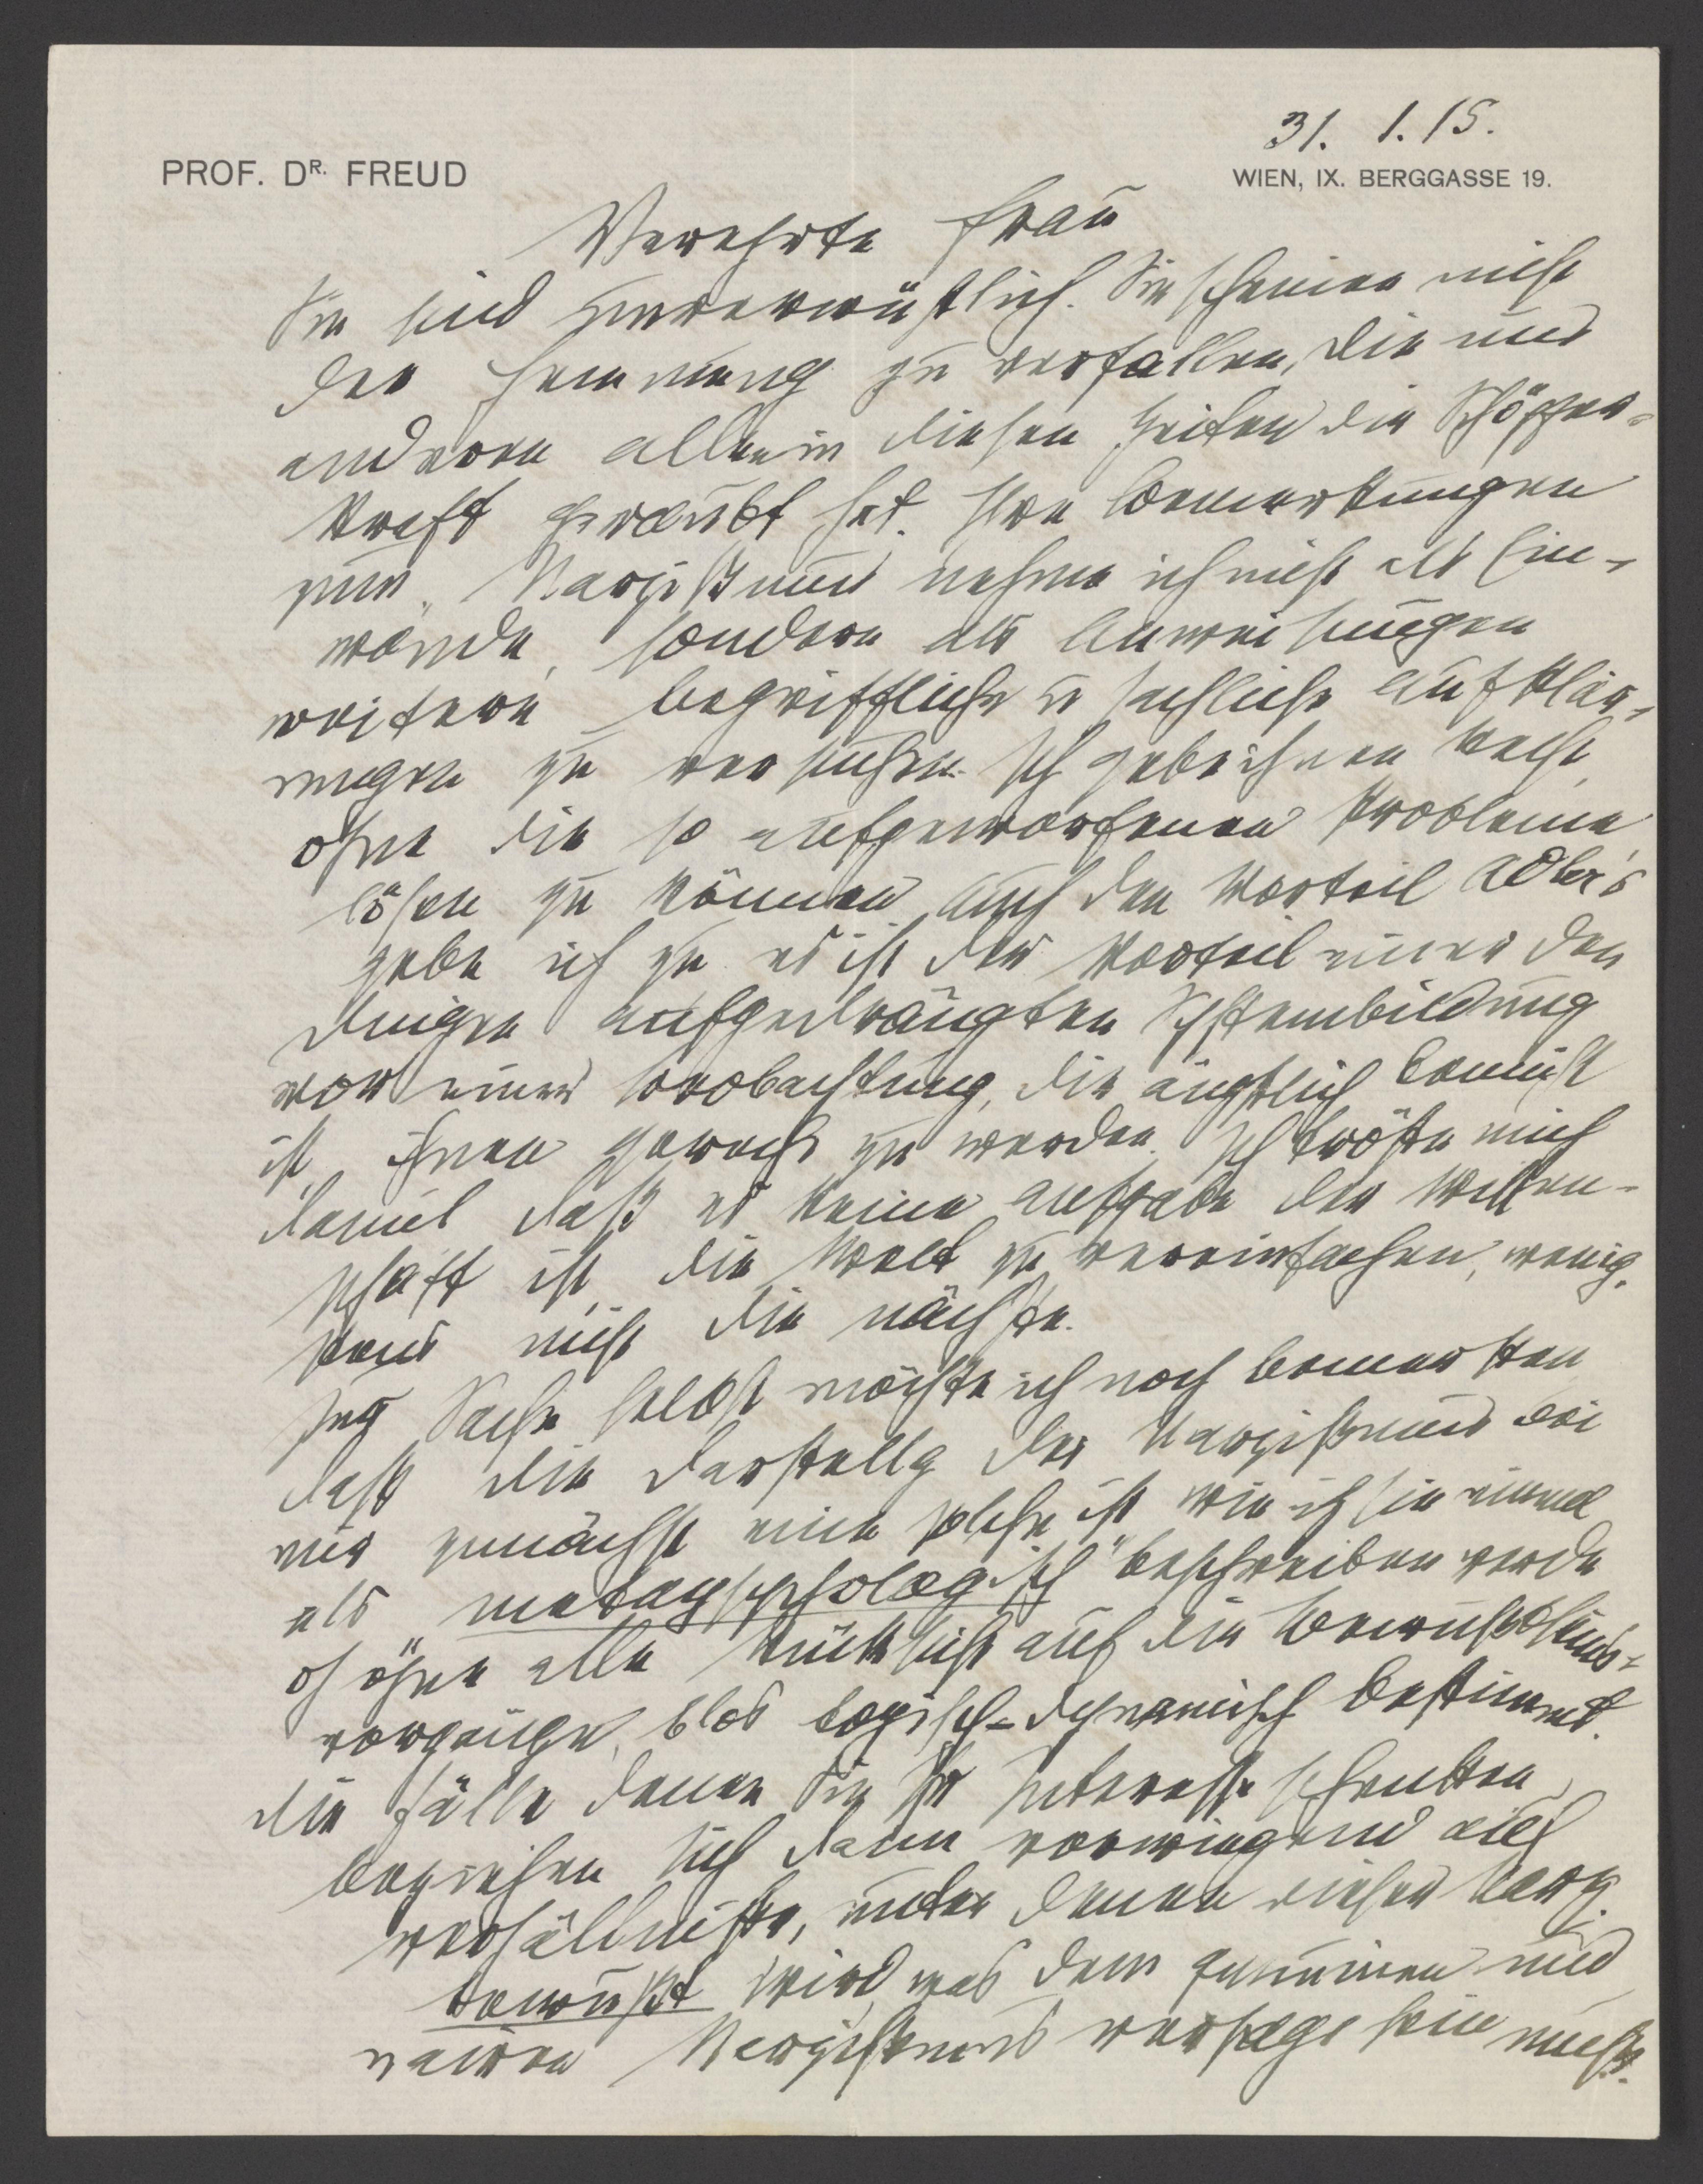 31. 1. 15.
PROF. DR. FREUD
WIEN, IX. BERGGASSE 19.
Verehrte Frau
Sie sind unverwüstlich. Sie scheinen nicht
der Hemmung zu verfallen, die uns
anderen allen in diesen Zeiten die Schöpfer-
kraft geraubt hat. Ihre Bemerkungen
zum Narzißmus nehme ich nicht als Ein-
wände, sondern als Anweisungen
weitere begriffliche u sachliche Aufklär-
ungen zu versuchen. Ich gebe ihnen Recht,
ohne die so aufgeworfenen Probleme
lösen zu können. Auch den Vorteil Adler's
gebe ich zu, es ist der Vorteil einer den
Dingen aufgedrängten Systembildung
vor einer Beobachtung, die ängstlich bemüht
ist, ihnen gerecht zu werden. Ich tröste mich
damit daß es keine Aufgabe der Wissen-
schaft ist, die Welt zu vereinfachen, wenig-
stens nicht die nächste.
Zur Sache selbst möchte ich noch bemerken
daß die Darstellg des Narzißmus bei
mir zunächst eine solche ist wie ich sie einmal
als „metapsychologisch" beschreiben werde
dh ohne alle Rücksicht auf die Bewußtseins-
vorgänge, blos topisch-dynamisch bestimmt.
Die Fälle denen Sie Ihr Interesse schenkten,
beziehen sich dann vorwiegend auf
Verhältnisse, unter denen dieser Narz.
bewußt wird, was dem genuinen und
naiven Narzißmus versagt sein muß.